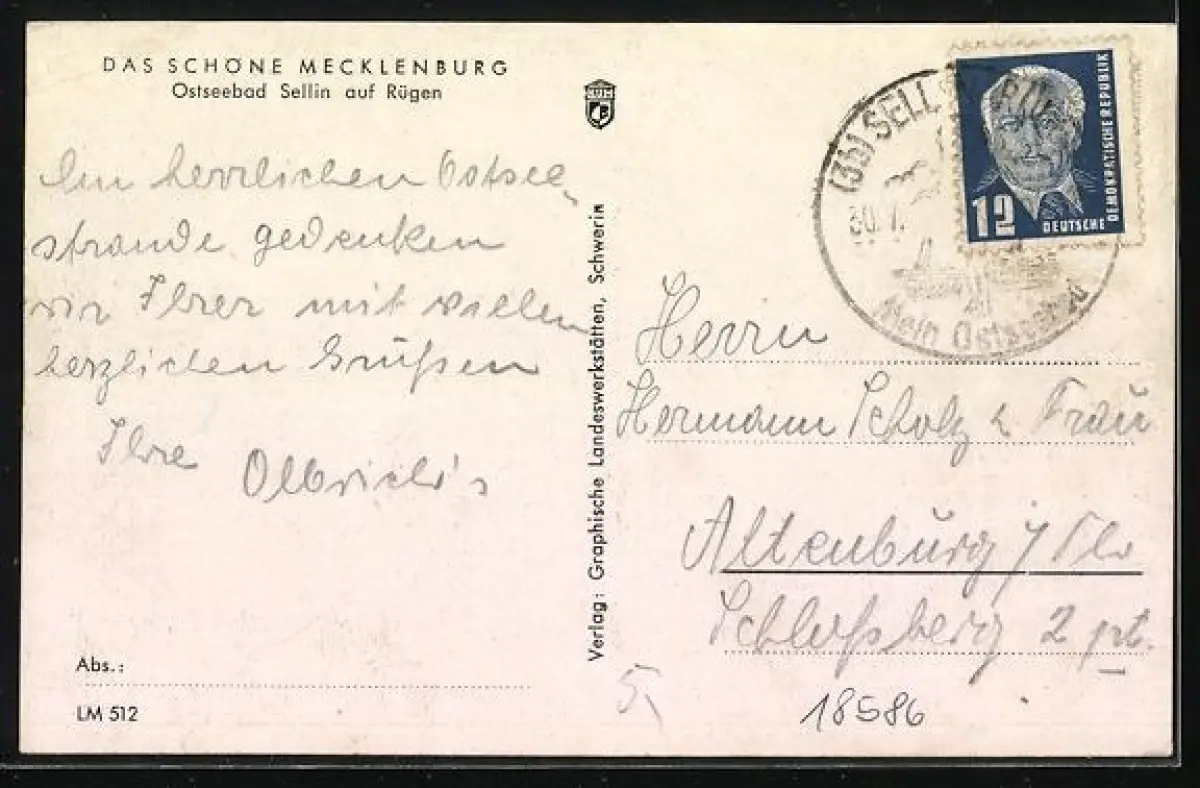 DAS SCHÖNE MECKLENBURG
Ostseebad Sellin auf Rügen
Am herrlichen Ostsee-
strande gedenken
wir Ihrer mit vielen
herzlichen Grüßen
Ihre Olbrich's
Abs.:
LM 512
Verlag: Graphische Landeswerkstätten, Schwerin
(3b) SELL
30. 7.
12
DEUTSCHE
DEMOKRATISCHE REPUBLIK
Herrn
Hermann Scholz u Frau
Altenburg / Thr
Schloßberg 2 pt.
5,
18586